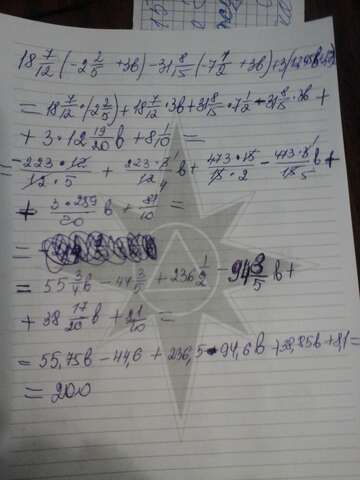 18 7/12 (-2 2/5 + 3в) - 31 8/15 (-7 1/2 + 3в) + 3(12,95в
= 18 7/12 · (2 2/5) + 18 7/12 · 3в + 31 8/15 · 7 1/2 - 31 8/15 · 3в +
+ 3 · 12 19/20 в + 8 1/10 =
= -223 · 12/12 · 5 + 223 · 3/12 4 в + 473 · 15/15 · 2 - 473 · 3/15 5 в +
+ 3 · 259/20 в + 81/10 =
=
= 55 3/4 в - 44 3/5 + 236 1/2 - 94 3/5 в +
+ 38 17/20 в + 81/10 =
= 55,75в - 44,6 + 236,5 - 94,6в + 38,85в + 8,1 =
= 200